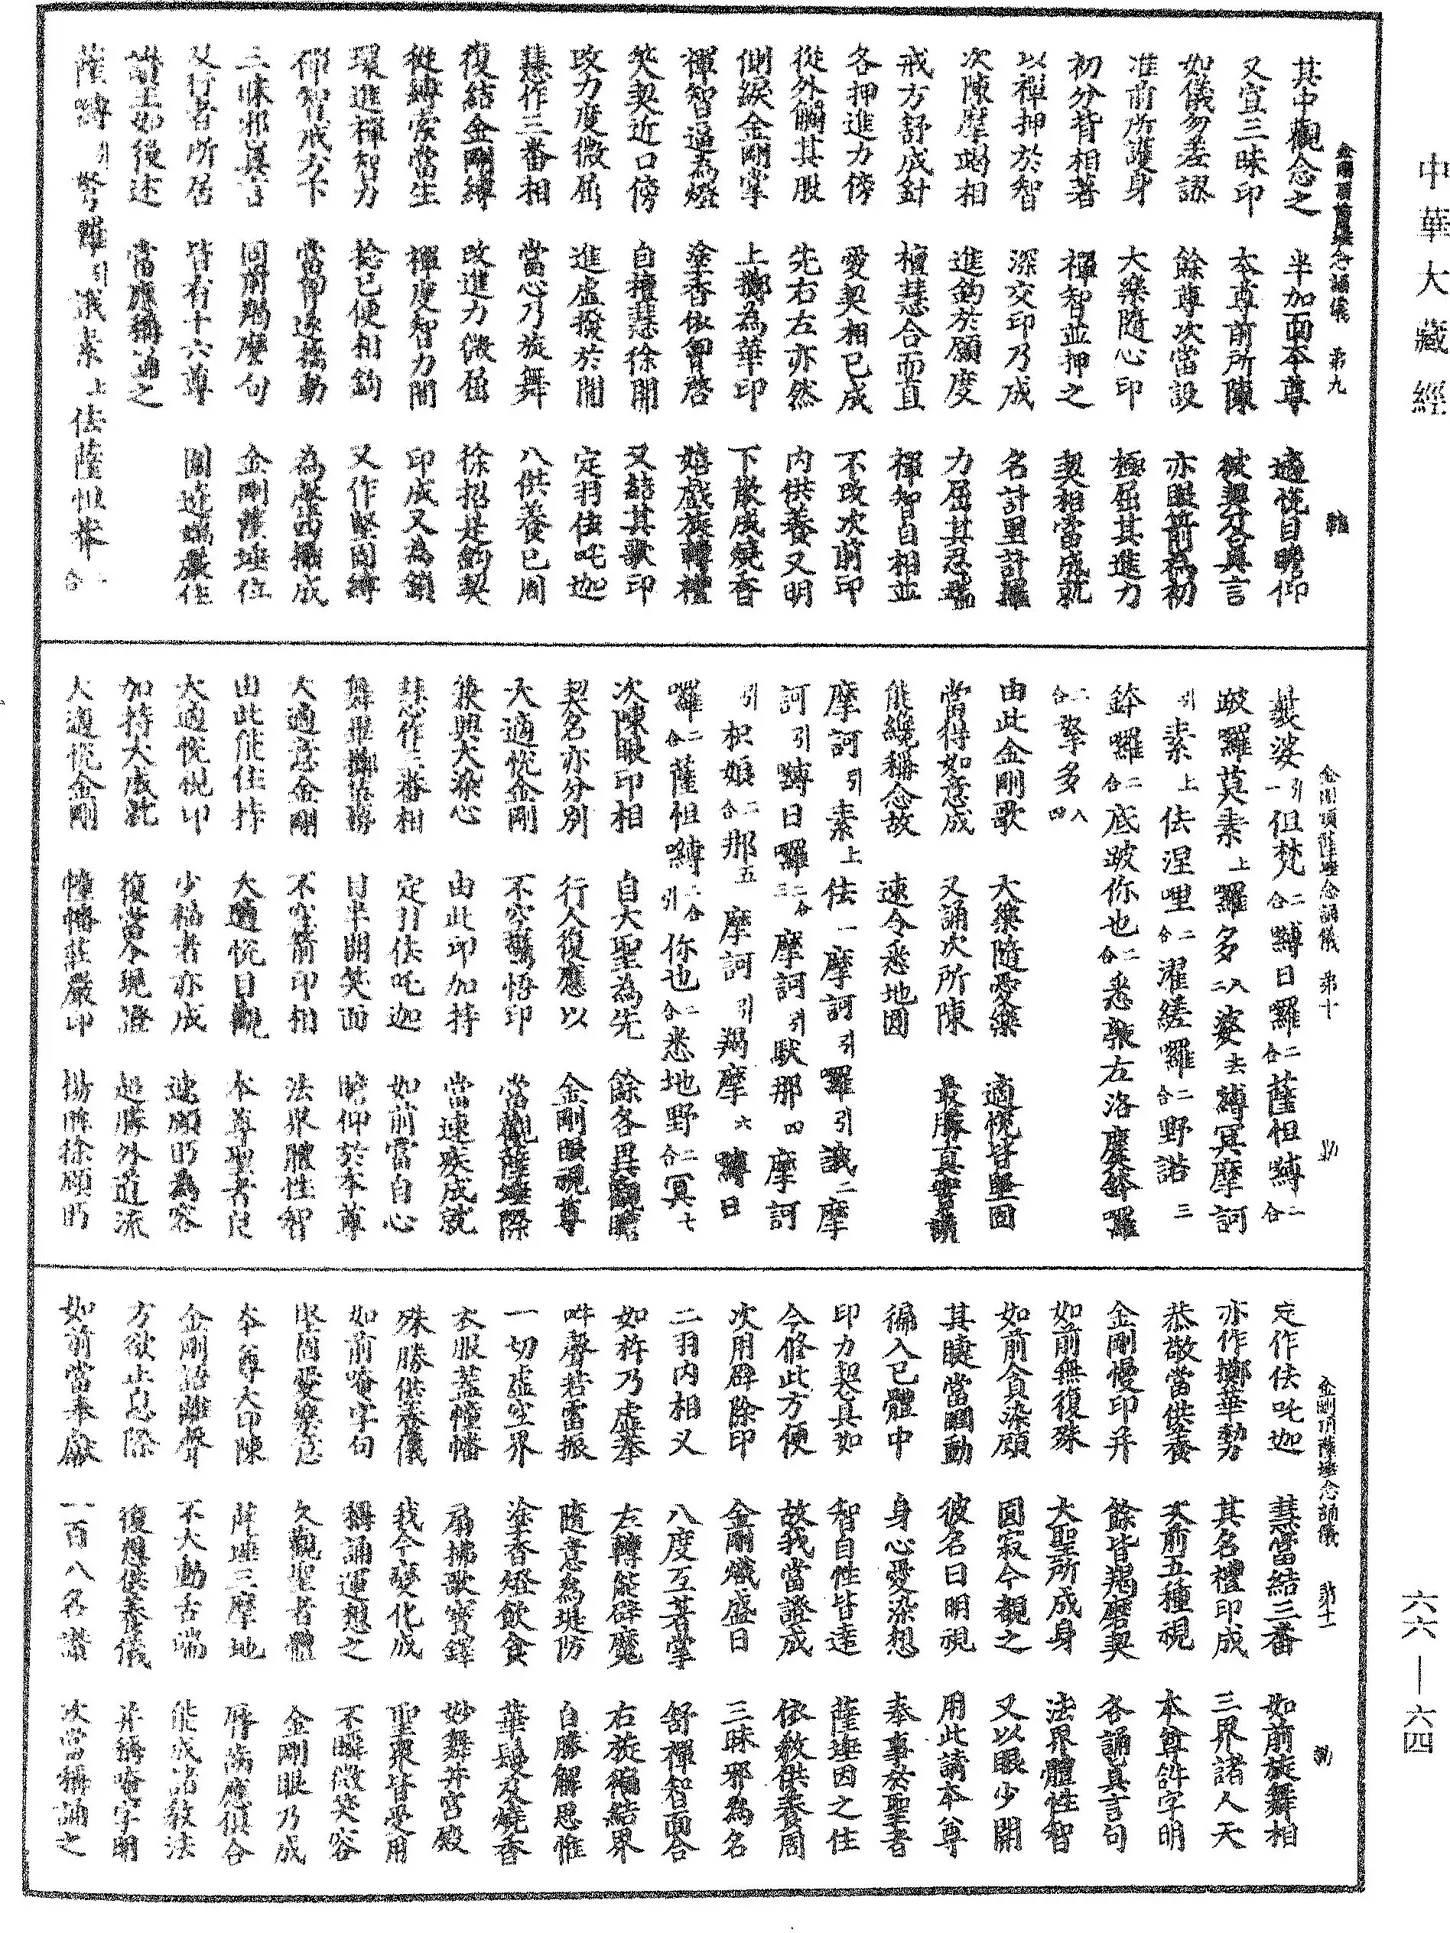 中華大藏經
六六—六四
其中觀念之　半加面本尊　適悅目瞻仰
又宜三昧印　本尊前所陳　彼契合真言
如儀勿差謬　餘尊次當設　亦照前為初
准前所護身　大樂隨心印　極屈其進力
初分背相著　禪智並押之　契相當成就
以禪押於智　深交印乃成　名計里計羅
次陳摩竭相　進鈎於願度　力屈其忍端
戒方舒成針　檀慧合而直　禪智自相並
各押進力傍　愛契相已成　不改次前印
從外觸其股　先右左亦然　內供養又明
側綟金剛掌　上擲為華印　下散成燒香
禪智逼為燈　塗香依胷啓　嬉戲旋轉禮
笑契近口傍　自檀慧徐開　又結其歌印
改力度微屈　進虛撥於開　定羽伎吒迦
慧作三番相　當心乃旋舞　八供養已周
復結金剛縛　改進力微屈　徐招是鈎契
從縛索當生　禪度智力間　印成又為鎖
環進禪智力　捻已便相鈎　又作堅固縛
禪智戒方下　當節送搖動　為磬由攝成
三昧邪真言　同前羯磨句　金剛薩埵位
又行者所居　皆有十六尊　圍遶端嚴住
請王如後述　當應稱誦之
金剛頂薩埵念誦儀　第九
薩縛引弩羅引誐素上佉薩怛嚩二合
曩娑引一怛梵二合嚩日囉二合薩怛嚩二合
跛囉莫素上囉多入二娑去嚩冥摩訶
引素上佉涅哩二合濯縒囉二合野諾三
鉢囉二合底跛你也二合悉㪍左洛麌鉢囉
二合拏多入四
由此金剛歌　大樂隨愛樂　適悅皆堅固
當得如意成　又誦次所陳　最勝真實讚
能纔稱念故　速令悉地圓
摩訶引素上佉一摩訶引囉引誐二摩
訶引嚩日囉二合三摩訶引馱那四摩訶
引枳娘二合那五摩訶引羯摩六嚩日
囉二合薩怛嚩二合引你也二合悉地野二合冥七
次陳眼印相　自大聖為先　餘各異觀瞻
契名亦分別　行人復應以　金剛眼視尊
大適悅金剛　不空驚悟印　當觀薩埵際
兼興大染心　由此印加持　當速疾成就
慧作三番相　定引伎吒迦　如前當自心
舞畢擲华勢　目半開笑面　瞻仰於本尊
大適意金剛　不空箭印相　法界體性智
由此能住持　大適悅目觀　本尊聖者良
大適悅悅印　少福者亦成　速顧眄為容
加持大成就　復當令現證　超勝外道流
大適悅金剛　幢幡莊嚴印　揚眸徐顧眄
金剛頂薩埵念誦儀　第十
定作伎吒迦　慧當結三番　如前旋舞相
亦作擲華勢　其名禮印成　三界諸人天
恭敬當供養　次前五種視　本尊許字明
金剛慢印并　餘皆羯磨契　各誦真言句
如前無復殊　大聖所成身　法界體性智
如前含貪染顧　圓寂今觀之　又以眼少開
其睫當瞤動　彼名曰明視　用此請本尊
徧入己體中　身心愛染想　奉事於聖者
印力契合具如　智自性皆遠　薩埵因之住
今修此方便　故我當證成　依教供養周
次用辟除印　金剛熾盛日　三昧邪為名
二羽內相叉　八度互著掌　舒禪智面合
如杵乃虛拳　左轉能辟魔　右旋徧結界
吽聲若雷振　隨意為堤防　自勝解思惟
一切虛空界　塗香燈飲食　華鬘及燒香
衣服蓋幢幡　扇拂歌寶鐸　妙舞并宮殿
殊勝供養儀　我今變化成　聖眾皆受用
如前唵字句　稱誦運想之　不瞬微笑容
堅固愛樂意　久觀聖者體　金剛眼乃成
本尊大印陳　薩埵三摩地　脣齒應俱合
金剛語離聲　不大動舌端　能成諸教法
方欲止息際　復想供養儀　并稱唵字明
如前當奉獻　一百八名讚　次當稱誦之
金剛頂薩埵念誦儀　第十一